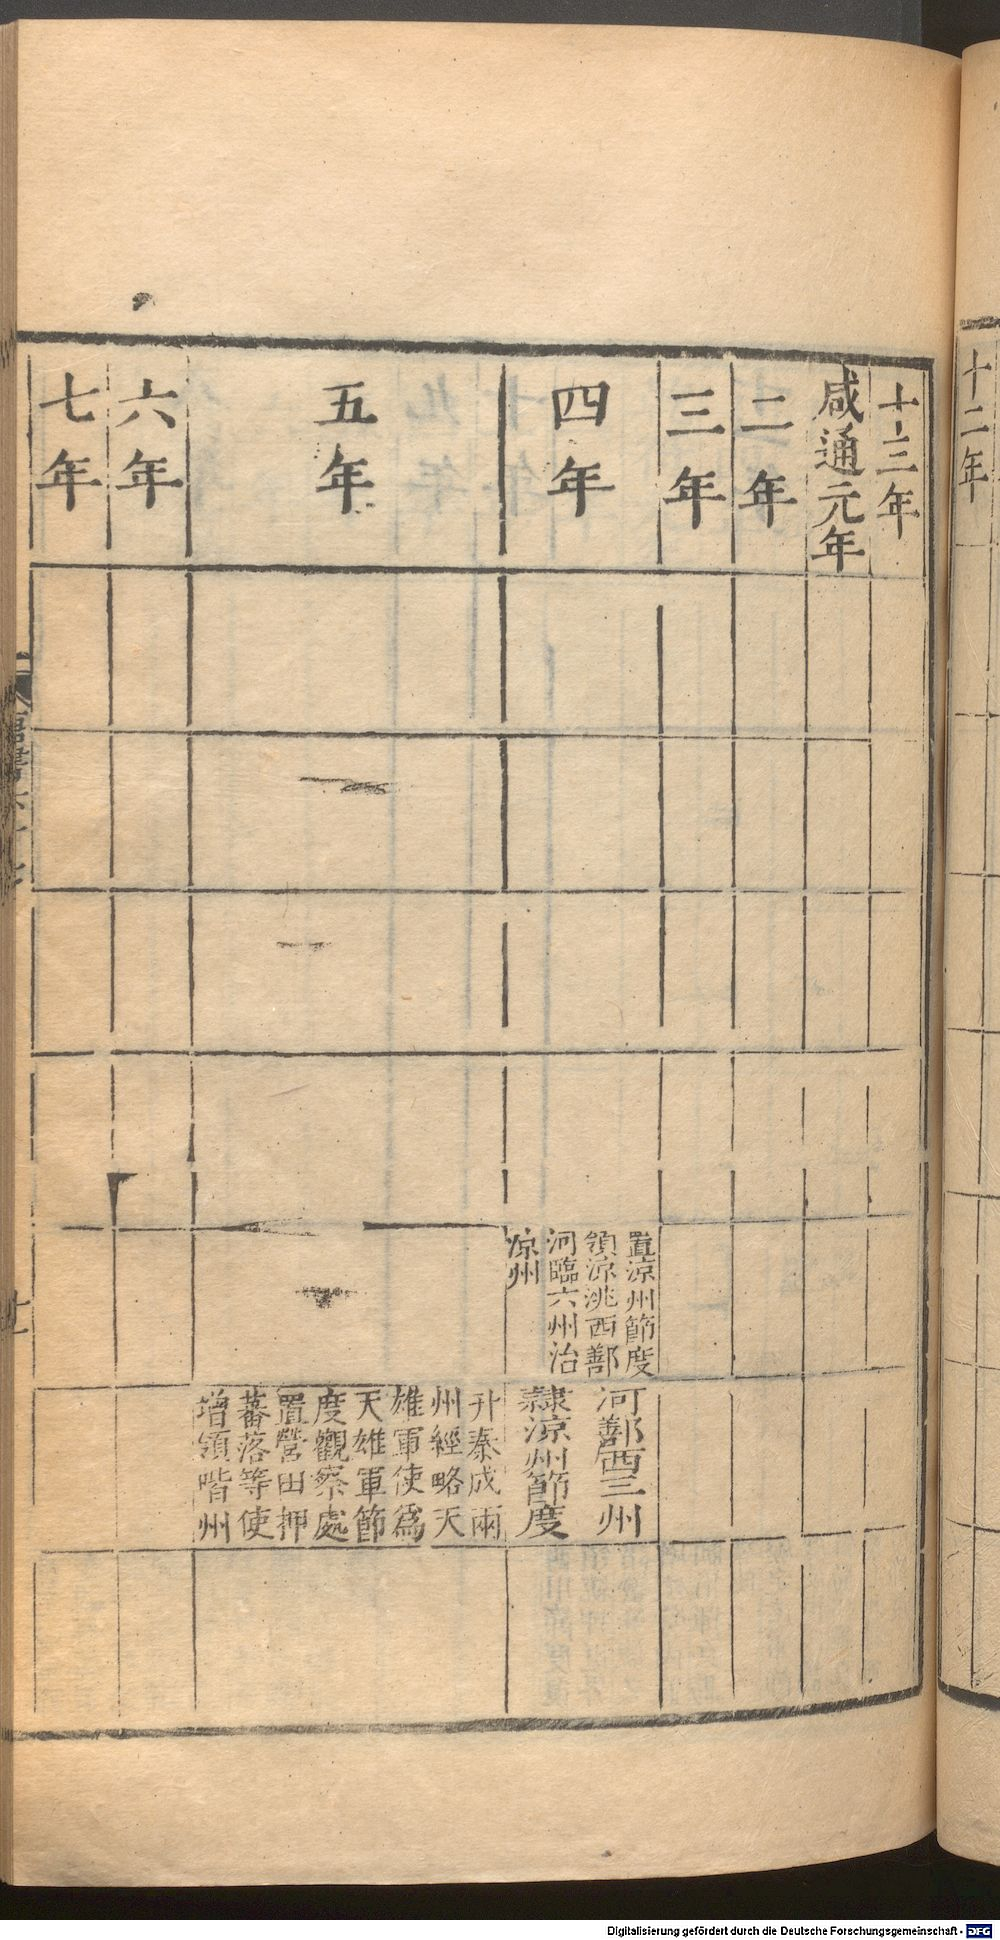 十二年
十三年
咸通元年
二年
三年
四年
置涼州節度
領涼洮西鄯
河臨六州治
涼州
河鄯西三州
隸涼州節度
五年
升秦成兩
州經略天
雄軍使爲
天雄軍節
度觀察處
置營田押
蕃落等使
增領階州
六年
七年
唐書六十七
Digitalisierung gefördert durch die Deutsche Forschungsgemeinschaft - DFG